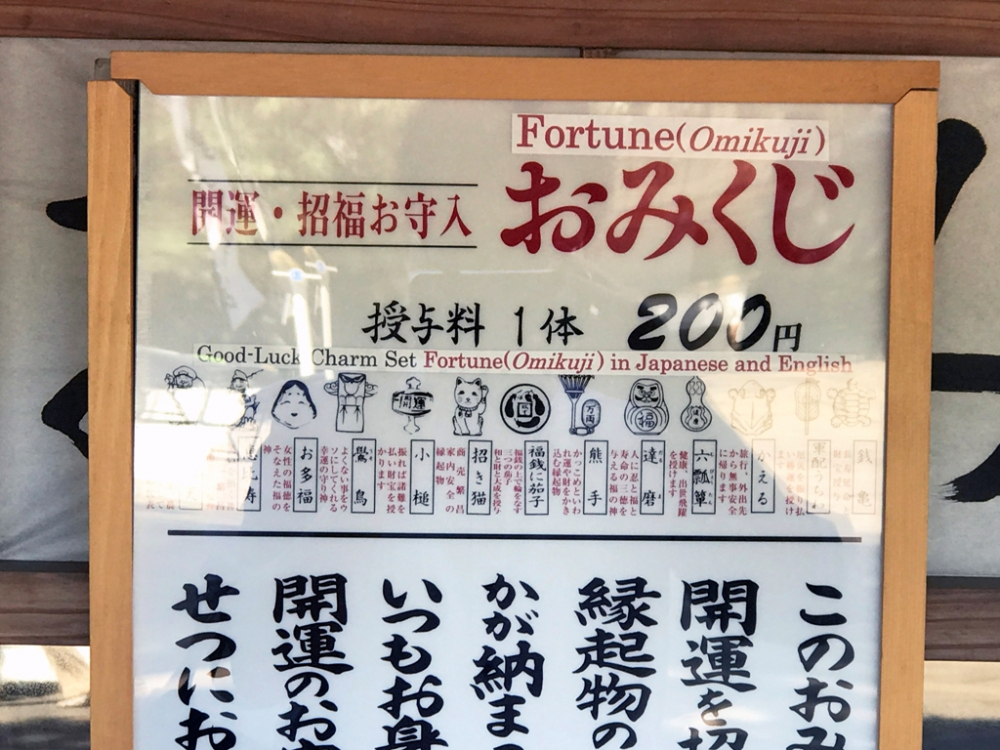 Fortune(Omikuji)
開運・招福お守入
おみくじ
授与料 1体 200円
Good-Luck Charm Set Fortune(Omikuji) in Japanese and English
開運
福
万両
銭亀
かえる
旅行、外出先
から無事安全
に帰ります
六瓢箪
健康、出世飛躍
を授けます
達磨
人に忍と福と
寿命の三徳を
与える福の神
熊手
かっこめといわ
れ運や財をかき
込む縁起物
福銭に茄子
招き猫
商売繁昌
家内安全の
縁起物
小槌
振れば諸難を
払い財宝を授
かります
鷽鳥
よくない事をウ
ソにしてくれる
幸運の守り神
お多福
女性の福徳を
そなえた福の
神
このおみ
開運を招
縁起物の
かが納ま
いつもお身
開運のお守
せつにお